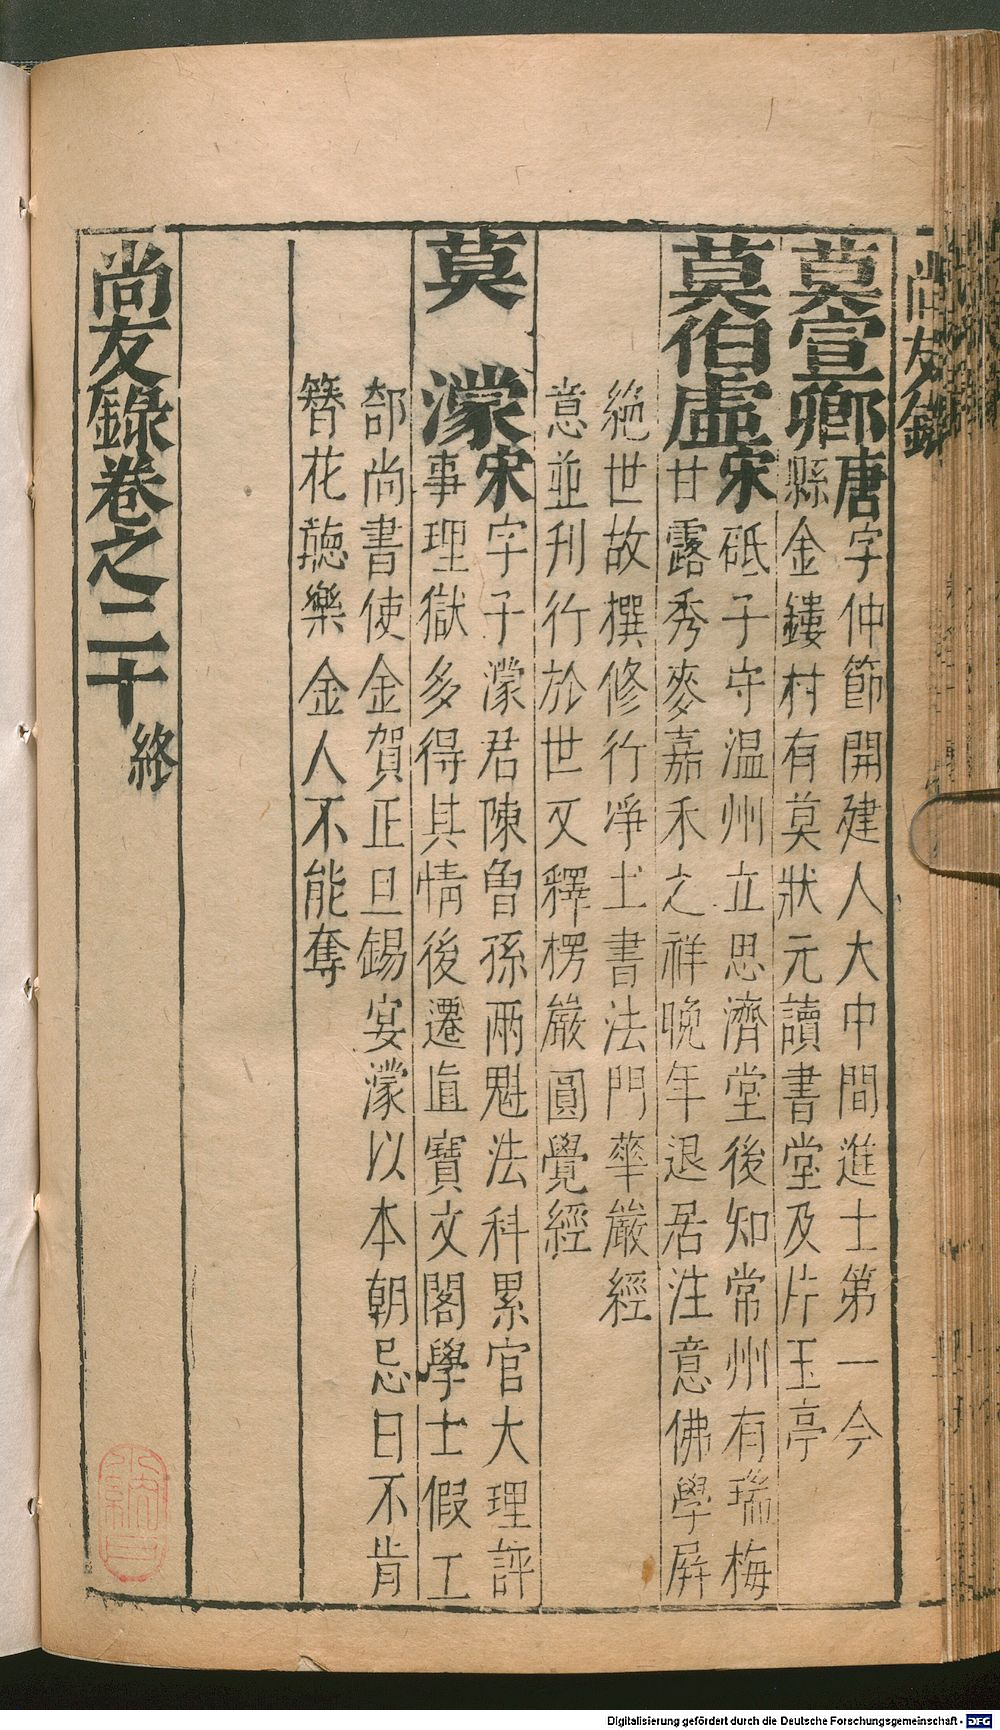 尚友錄
莫宣卿唐字仲節開建人大中間進士第一今
縣金鏤村有莫狀元讀書堂及片玉亭
莫伯虛宋砥子守温州立思濟堂後知常州有瑞梅
甘露秀麥嘉禾之祥晚年退居注意佛學屏
絶世故撰修行净土書法門華嚴經
意並刊行於世又釋楞嚴圓覺經
莫濛宋字子濛君陳曾孫兩魁法科累官大理評
事理獄多得其情後遷直寶文閣學士假工
部尚書使金賀正旦錫宴濛以本朝忌日不肯
簪花聽樂金人不能奪
尚友錄卷之二十終
Digitalisierung gefördert durch die Deutsche Forschungsgemeinschaft - DFG